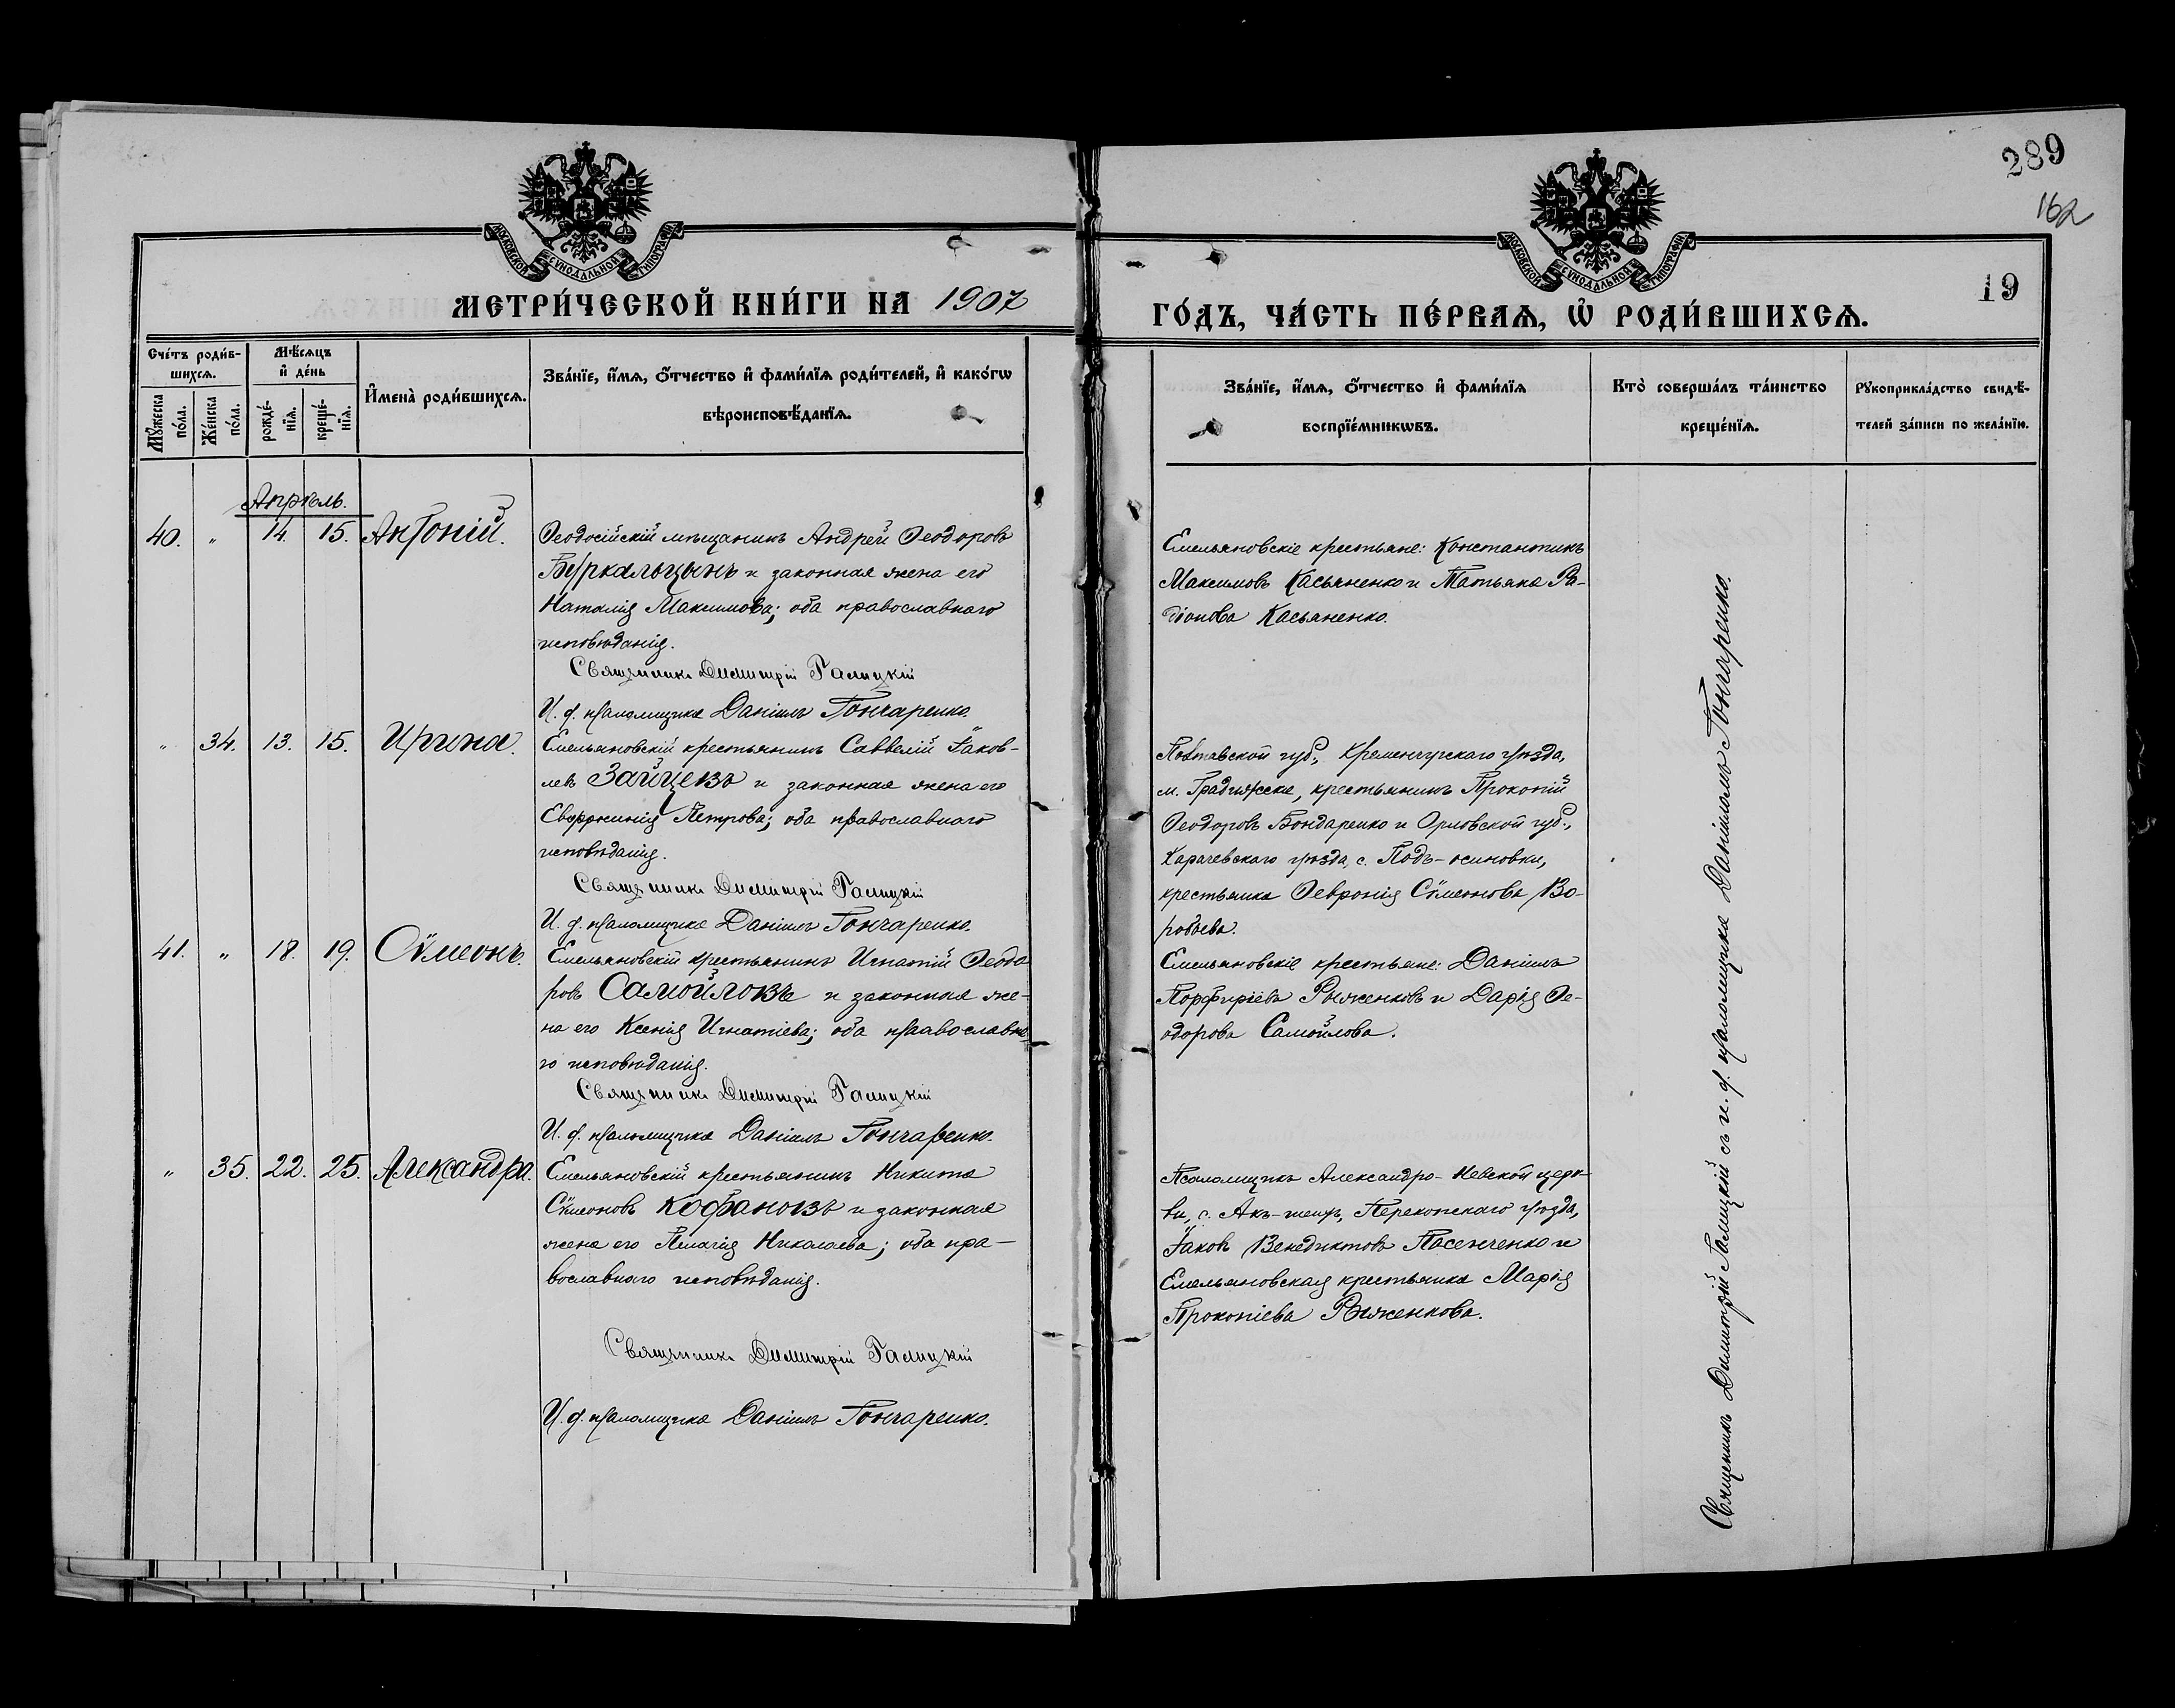 289
162
19
МОСКОВСКОЙ СУНОДАЛЬНОЙ ТИПОГРАФІИ
МОСКОВСКОЙ СУНОДАЛЬНОЙ ТИПОГРАФІИ
МЕТРИ́ЧЕСКОЙ КНИ́ГИ НА 1907
ГО́ДЪ, ЧА́СТЬ ПЕ́РВАѦ, Ѡ҆ РОДИ́ВШИХСѦ.
Сче́тъ роди́в-
шихсѧ.
Мꙋ́жеска по́ла.
Же́нска по́ла.
Мѣ́сѧцъ
и҆ де́нь
рожде́-
нїѧ.
креще́-
нїѧ.
И҆мена̀ роди́вшихсѧ.
Зва́нїе, и҆́мѧ, ѻ҆́тчество и҆ фами́лїѧ роди́телей, и҆ како́гѡ
вѣроисповѣ́данїѧ.
Зва́нїе, и҆́мѧ, ѻ҆́тчество и҆ фами́лїѧ
воспрїе́мникѡвъ.
Кто̀ соверша́лъ та́инство
креще́нїѧ.
Рꙋкоприкла́дство свидѣ́-
телей за́писи по жела́нїю.
Апрѣль.
40. " 14. 15. Антоній.
Ѳеодосійскій мѣщанинъ Андрей Ѳеодоровъ
Буркальцынъ и законная жена его
Наталія Максимова; оба православнаго
исповѣданія.
Священникъ Димитрій Галицкій
И. д. псаломщика Даніилъ Гончаренко.
Емельяновскіе крестьяне: Константинъ
Максимовъ Касьяненко и Татьяна Ра-
діонова Касьяненко.
" 34. 13. 15. Ирина.
Емельяновскій крестьянинъ Саввелій Іаков-
левъ Зайцевъ и законная жена его
Евфросинія Петрова; оба православнаго
исповѣданія.
Священникъ Димитрій Галицкій
И. д. псаломщика Даніилъ Гончаренко.
Полтавской губ., Кременчугскаго уѣзда,
м. Градижска, крестьянинъ Прокопій
Ѳеодоровъ Бондаренко и Орловской губ.,
Карачевскаго уѣзда, с. Подъ-осиновки,
крестьянка Ѳевронія Сѵмеонова Во-
робьева.
41. " 18. 19. Сѵмеонъ.
Емельяновскій крестьянинъ Игнатій Ѳеодо
ровъ Самойловъ и законная же-
на его Ксенія Игнатіева; оба православна-
го исповѣданія.
Священникъ Димитрій Галицкій
И. д. псаломщика Даніилъ Гончаренко.
Емельяновскіе крестьяне: Даніилъ
Порфиріевъ Рыженковъ и Дарія Ѳе-
одорова Самойлова.
" 35. 22. 25. Александра.
Емельяновскій крестьянинъ Никита
Сѵмеоновъ Кофановъ и законная
жена его Пелагія Николаева; оба пра-
вославнаго исповѣданія.
Священникъ Димитрій Галицкій
И. д. псаломщика Даніилъ Гончаренко.
Псаломщикъ Александро-Невской церк-
ви, с. Акъ-шеихъ, Перекопскаго уѣзда,
Іаковъ Венедиктовъ Пасенченко и
Емельяновская крестьянка Марія
Прокопіева Рыженкова.
Священникъ Димитрій Галицкій съ и. д. псаломщика Даніиломъ Гончаренко.